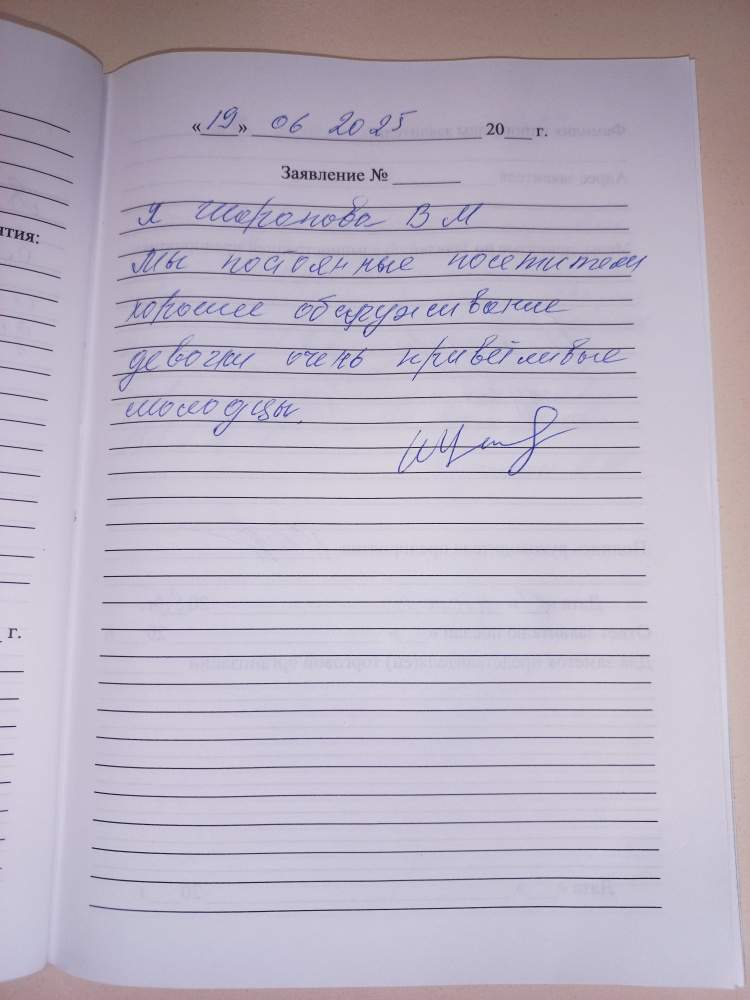 «19» 06 2025 20___ г.
Заявление № ________
Я Шарапова В М
Мы постоянные посетители
хорошее обслуживание
девочки очень приветливые
молодцы.
ятия:
г.